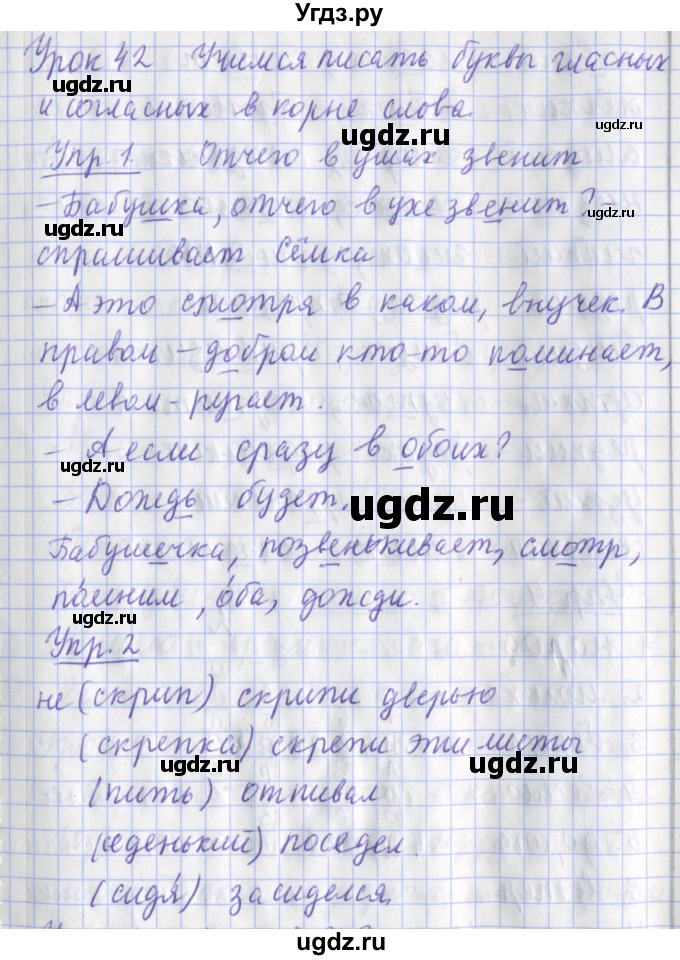 Угдз.ру
Урок 42 Учимся писать буквы гласных
и согласных в корне слова.
Упр. 1. Отчего в ушах звенит
– Бабушка, отчего в ухе звенит? –
спрашивает Сёмка
– А это смотря в каком, внучек. В
правом – добром кто-то поминает,
в левом – ругает.
– А если сразу в обоих?
– Дождь будет.
Бабушечка, позвенькивает, смотр,
по́мним, о́ба, дожди.
Упр. 2
не (скрип) скрипи дверью
(скрепка) скрепи эти листы
(пить) отпивал
(седенький) поседел.
(сидя́) засиделся,
ugdz.ru
ugdz.ru
ugdz.ru
ugdz.ru
ugdz.ru
ugdz.ru
ugdz.ru
ugdz.ru
ugdz.ru
ugdz.ru
ugdz.ru
ugdz.ru
ugdz.ru
ugdz.ru